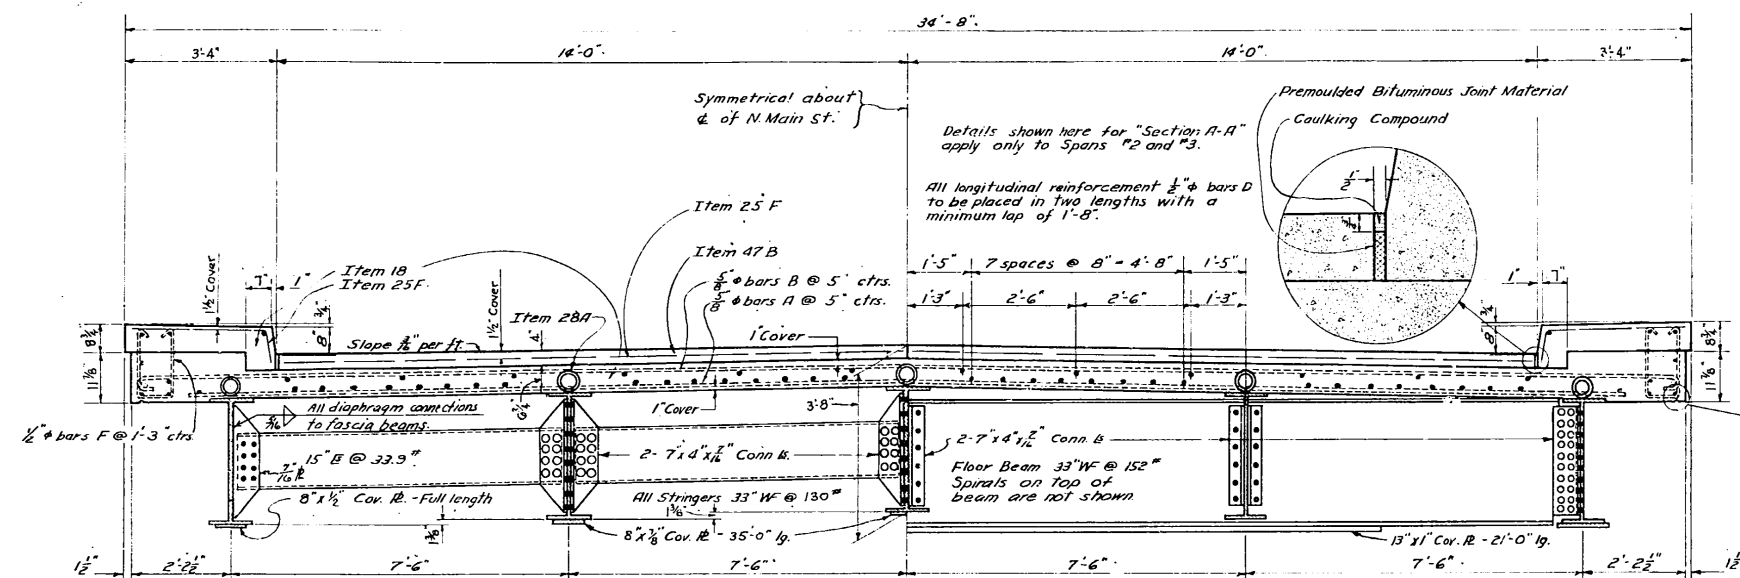 34'-8".
3'-4"
14'-0".
14'-0".
3'-4"
Symmetrical about
℄ of N. Main St.
Premoulded Bituminous Joint Material
Caulking Compound
Details shown here for "Section A-A"
apply only to Spans #2 and #3.
1/2"
All longitudinal reinforcement 1/2"φ bars D
to be placed in two lengths with a
minimum lap of 1'-8".
Item 25 F
Item 47 B
5/8"φ bars B @ 5" ctrs.
5/8"φ bars A @ 5" ctrs.
Item 18
Item 25F.
Item 28A
1 1/2" Cover
7"
1"
3/4"
8"
1 1/2" Cover
4"
1'-5"
7 spaces @ 8" = 4'-8"
1'-5"
1'-3"
2'-6"
2'-6"
1'-3"
1"
7"
3/4"
8"
8 3/4"
11 7/8"
Slope 3/16" per ft.
1" Cover
8 3/4"
11 7/8"
1" Cover
6 3/4"
3'-8"
1/2"φ bars F @ 1'-3" ctrs.
5/16
All diaphragm connections
to fascia beams.
15" [s @ 33.9#
7/16" ℞
8" x 1/2" Cov. ℞ - Full length
2- 7"x4"x7/16" Conn. ∠s.
All Stringers 33" WF @ 130#
1 3/8"
1 3/8"
8"x 7/8" Cov. ℞ - 35'-0" lg.
2-7"x4"x7/16" Conn. ∠s
Floor Beam 33" WF @ 152#
Spirals on top of
beam are not shown.
13"x1" Cov. ℞ - 21'-0" lg.
1 1/2"
2'-2 1/2"
7'-6"
7'-6"
7'-6"
7'-6"
2'-2 1/2"
1 1/2"